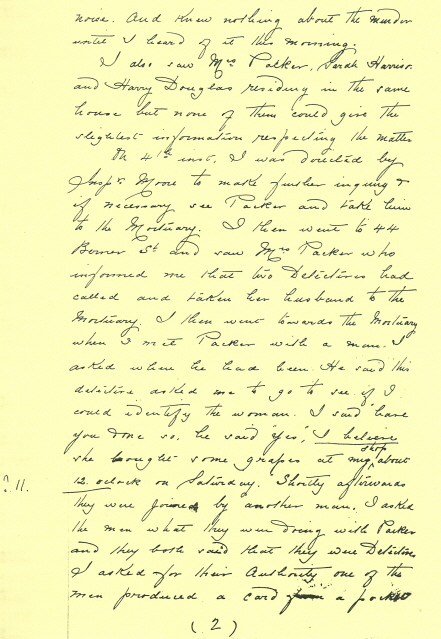 noise. And knew nothing about the murder
until I heard of it this morning.
I also saw Mrs Packer, Sarah Harrison
and Harry Douglas residing in the same
house but none of them could give the
slightest information respecting the matter
On 4th inst, I was directed by
Inspr Moore to make further inquiry &
if necessary see Packer and take him
to the Mortuary. I then went to 44
Berner St and saw Mrs Packer who
informed me that two Detectives had
called and taken her husband to the
Mortuary. I then went towards the Mortuary
when I met Packer with a man. I
asked where he had been. He said "this
detective asked me to go to see if I
could identify the woman. I said "have
you done so, he said "Yes," I believe
she bought some grapes at my shop about
? 11. 12. oclock on Saturday. Shortly afterwards
they were joined by another man. I asked
the men what they were doing with Packer
and they both said that they were Detectives
I asked for their Authority one of the
men produced a card a pocket
(2)